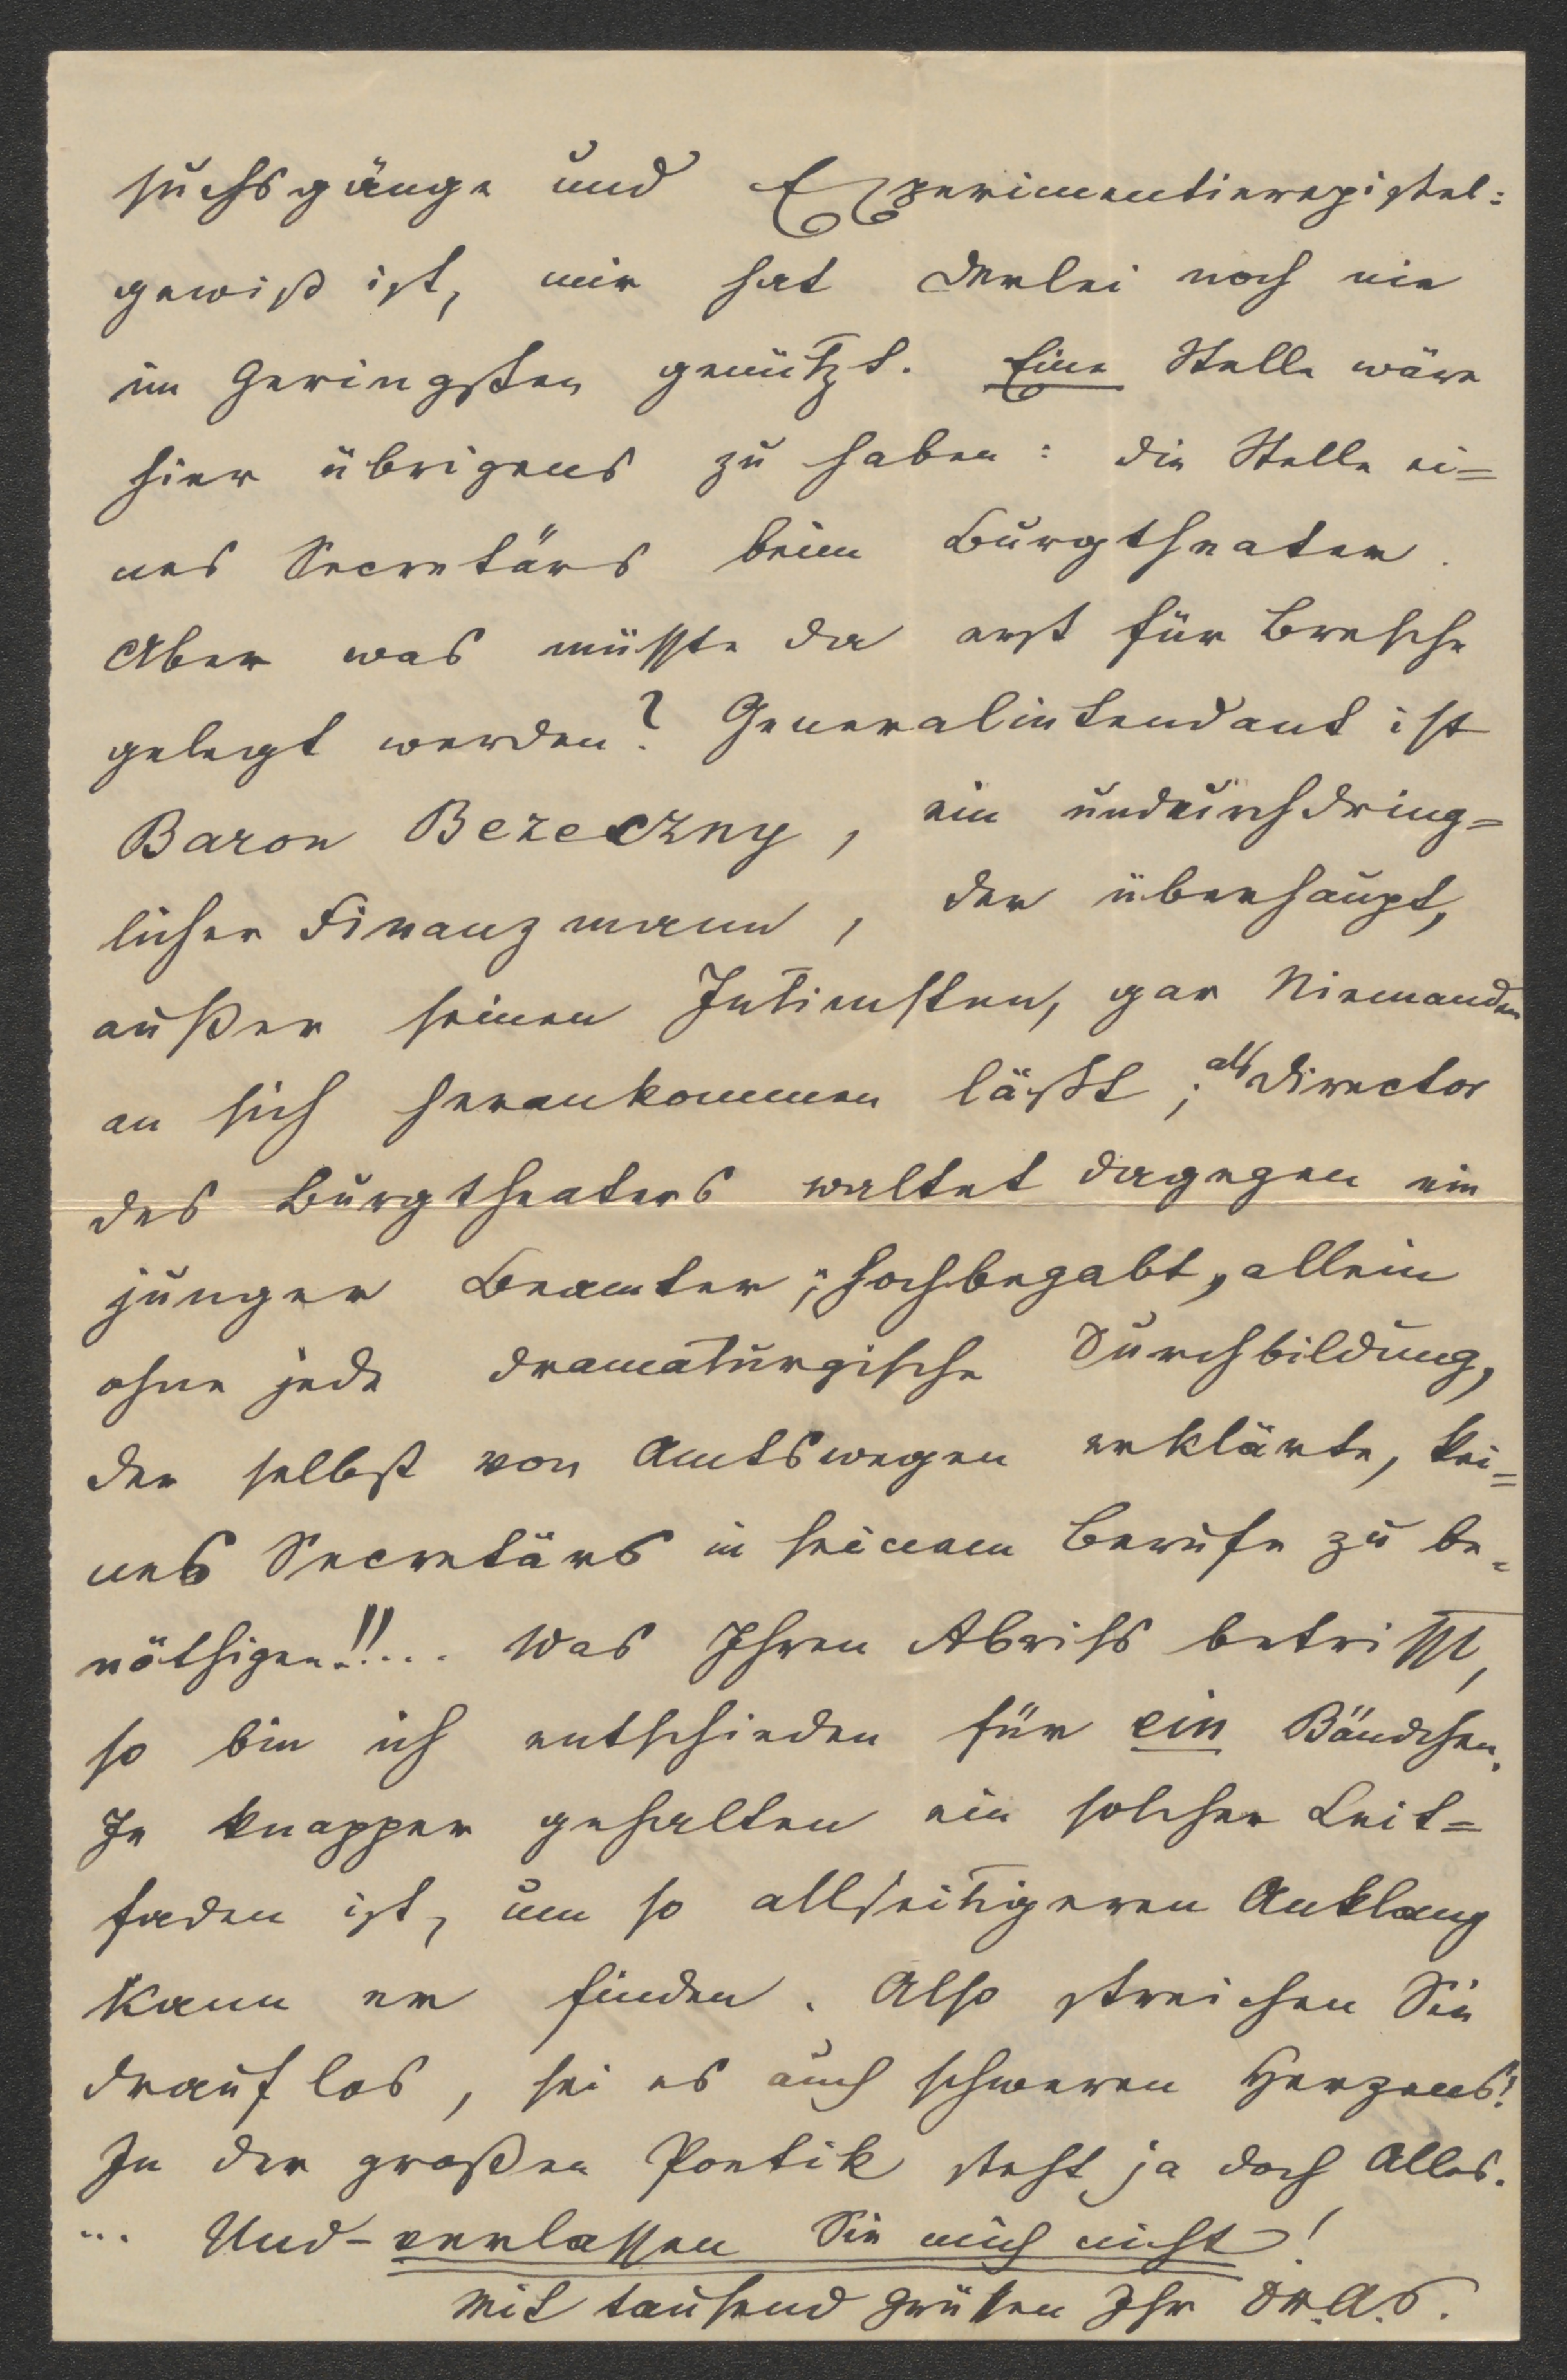 suchsgänge und Experimentierepistel:
gewiß ist, mir hat derlei noch nie
im Geringsten genützt. Eine Stelle wäre
hier übrigens zu haben: die Stelle ei=
nes Secretärs beim Burgtheater.
Aber was müsste da erst für Bresche
gelegt werden? Generalintendant ist
Baron Bezeczny, ein undurchdring=
licher Finanzmann, der überhaupt,
außer seinen Intimsten, gar Niemanden
an sich herankommen läßt; als Director
des Burgtheaters waltet dagegen ein
junger Beamter; hochbegabt, allein
ohne jede dramaturgische Durchbildung,
der selbst von Amtswegen erklärte, kei=
nes Secretärs in seinem Berufe zu be=
nöthigen!!... Was Ihren Abriss betrifft,
so bin ich entschieden für ein Bändchen.
Je knapper gehalten ein solcher Leit=
faden ist, um so allseitigeren Anklang
kann er finden. Also streichen Sie
drauf los, sei es auch schweren Herzens!
In der großen Poetik steht ja doch Alles.
... Und - verlassen Sie mich nicht!
Mit tausend Grüssen Ihr Dr. A. S.